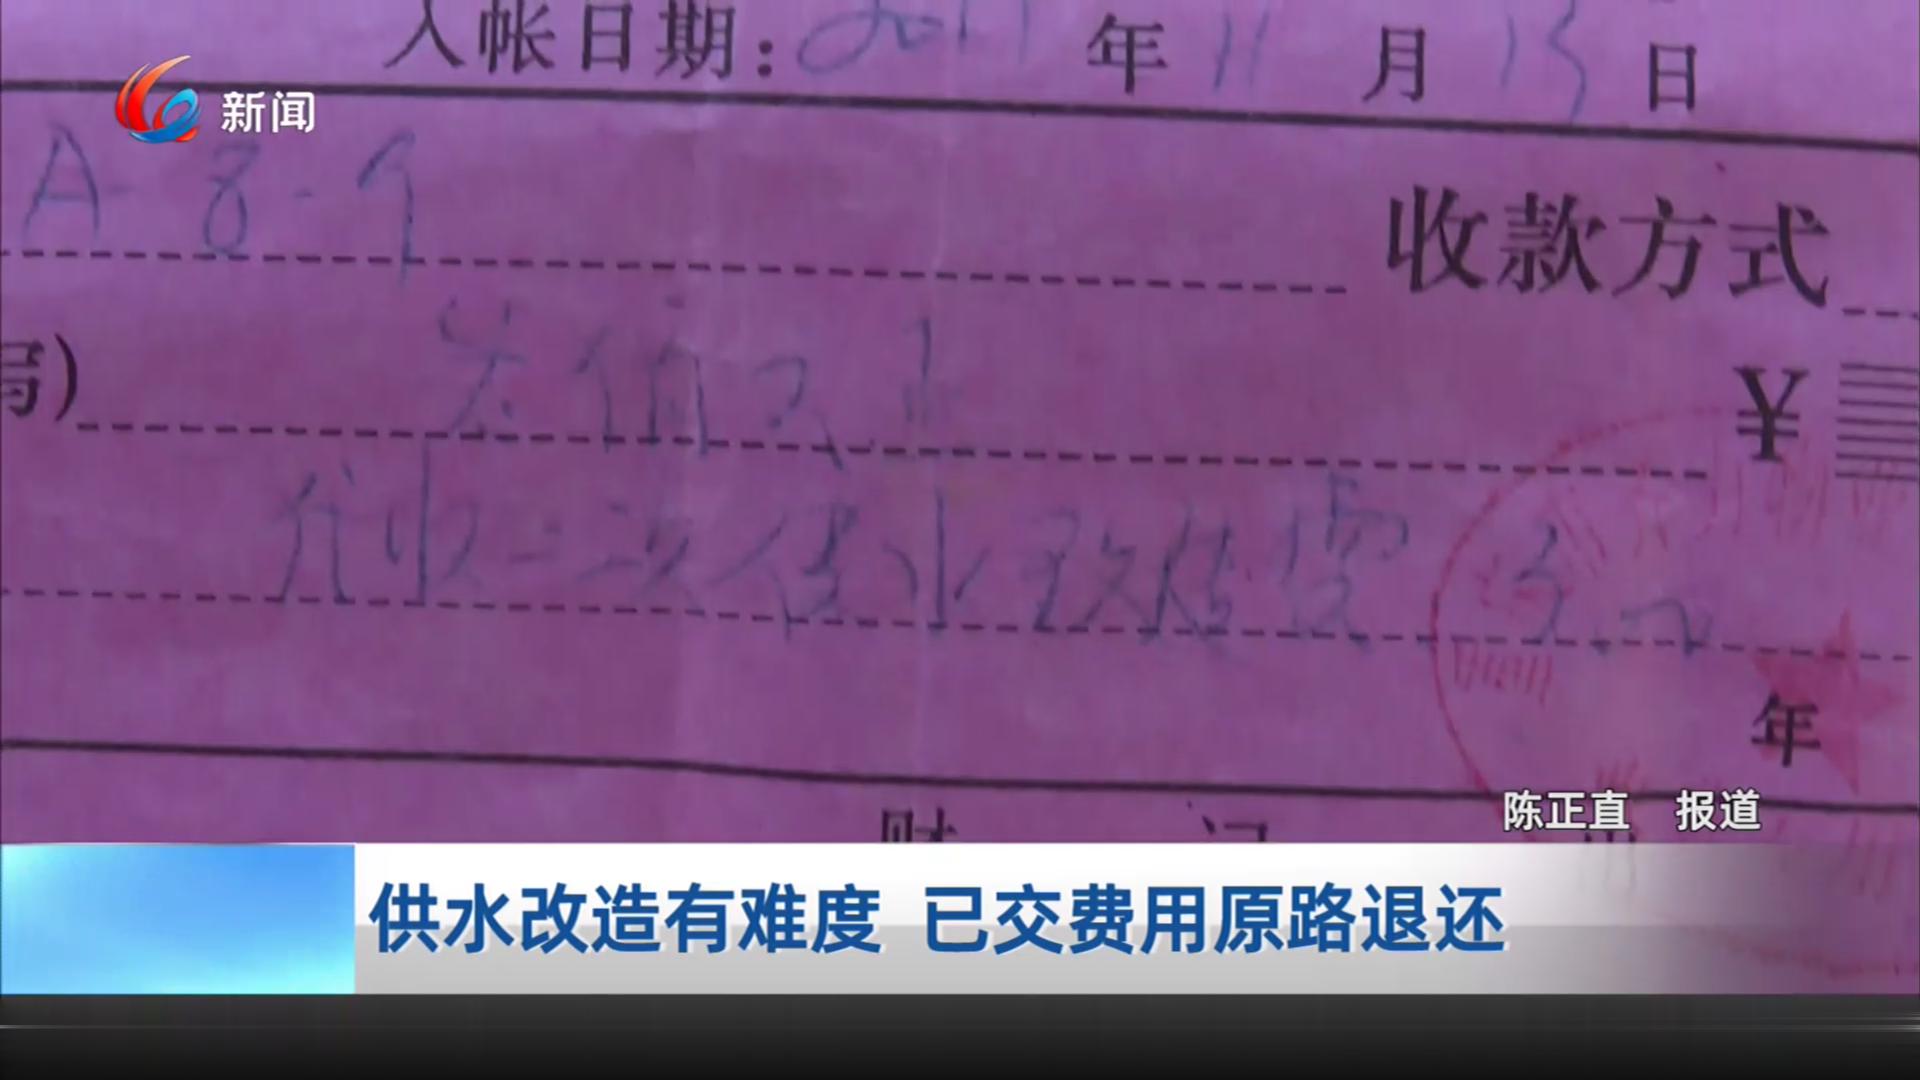 入帐日期: 2017年11月13日
新闻
A-8-9
收款方式
局)
¥
代收二次供水改造费
年
陈正直 报道
供水改造有难度 已交费用原路退还